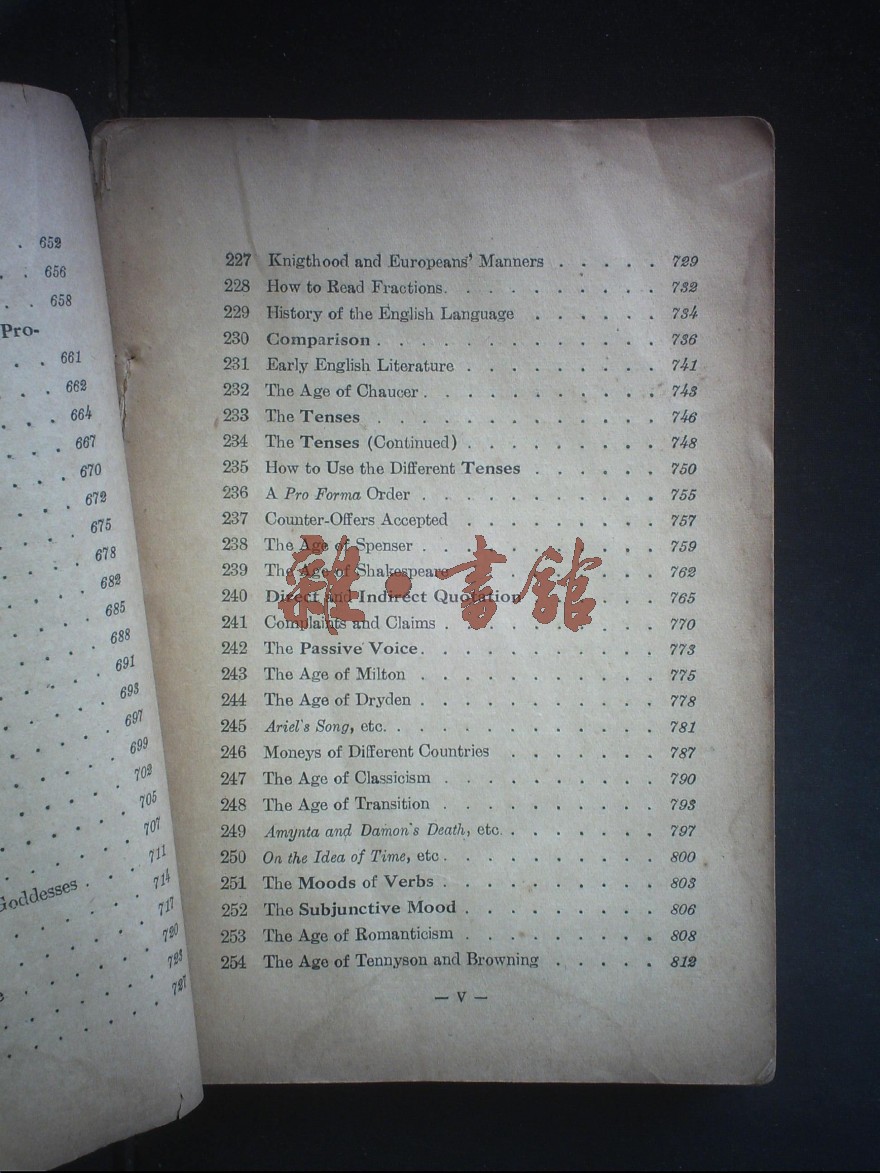 . 652
. . 656
. . 658
Pro-
. . 661
. . 662
. . . 664
. . . 667
. . . 670
672
675
678
682
685
688
691
693
697
699
702
705
707
711
Goddesses . . 714
717
720
723
727
227 Knigthood and Europeans' Manners . . . . . 729
228 How to Read Fractions. . . . . . . . . 732
229 History of the English Language . . . . . . 734
230 Comparison . . . . . . . . . . . . . 736
231 Early English Literature . . . . . . . . . 741
232 The Age of Chaucer . . . . . . . . . . . 743
233 The Tenses . . . . . . . . . . . . . 746
234 The Tenses (Continued) . . . . . . . . 748
235 How to Use the Different Tenses . . . . . . 750
236 A Pro Forma Order . . . . . . . . . . . 755
237 Counter-Offers Accepted . . . . . . . . . 757
238 The Age of Spenser . . . . . . . . . . . 759
239 The Age of Shakespeare . . . . . . . . . 762
240 Direct and Indirect Quotation . . . . . . 765
241 Complaints and Claims . . . . . . . . . . 770
242 The Passive Voice . . . . . . . . . . . 773
243 The Age of Milton . . . . . . . . . . . 775
244 The Age of Dryden . . . . . . . . . . . 778
245 Ariel's Song, etc. . . . . . . . . . . . 781
246 Moneys of Different Countries . . . . . . . 787
247 The Age of Classicism . . . . . . . . . . 790
248 The Age of Transition . . . . . . . . . . 793
249 Amynta and Damon's Death, etc. . . . . . . . 797
250 On the Idea of Time, etc . . . . . . . . . . 800
251 The Moods of Verbs . . . . . . . . . . 803
252 The Subjunctive Mood . . . . . . . . . 806
253 The Age of Romanticism . . . . . . . . . 808
254 The Age of Tennyson and Browning . . . . . 812
— V —
雜·書館